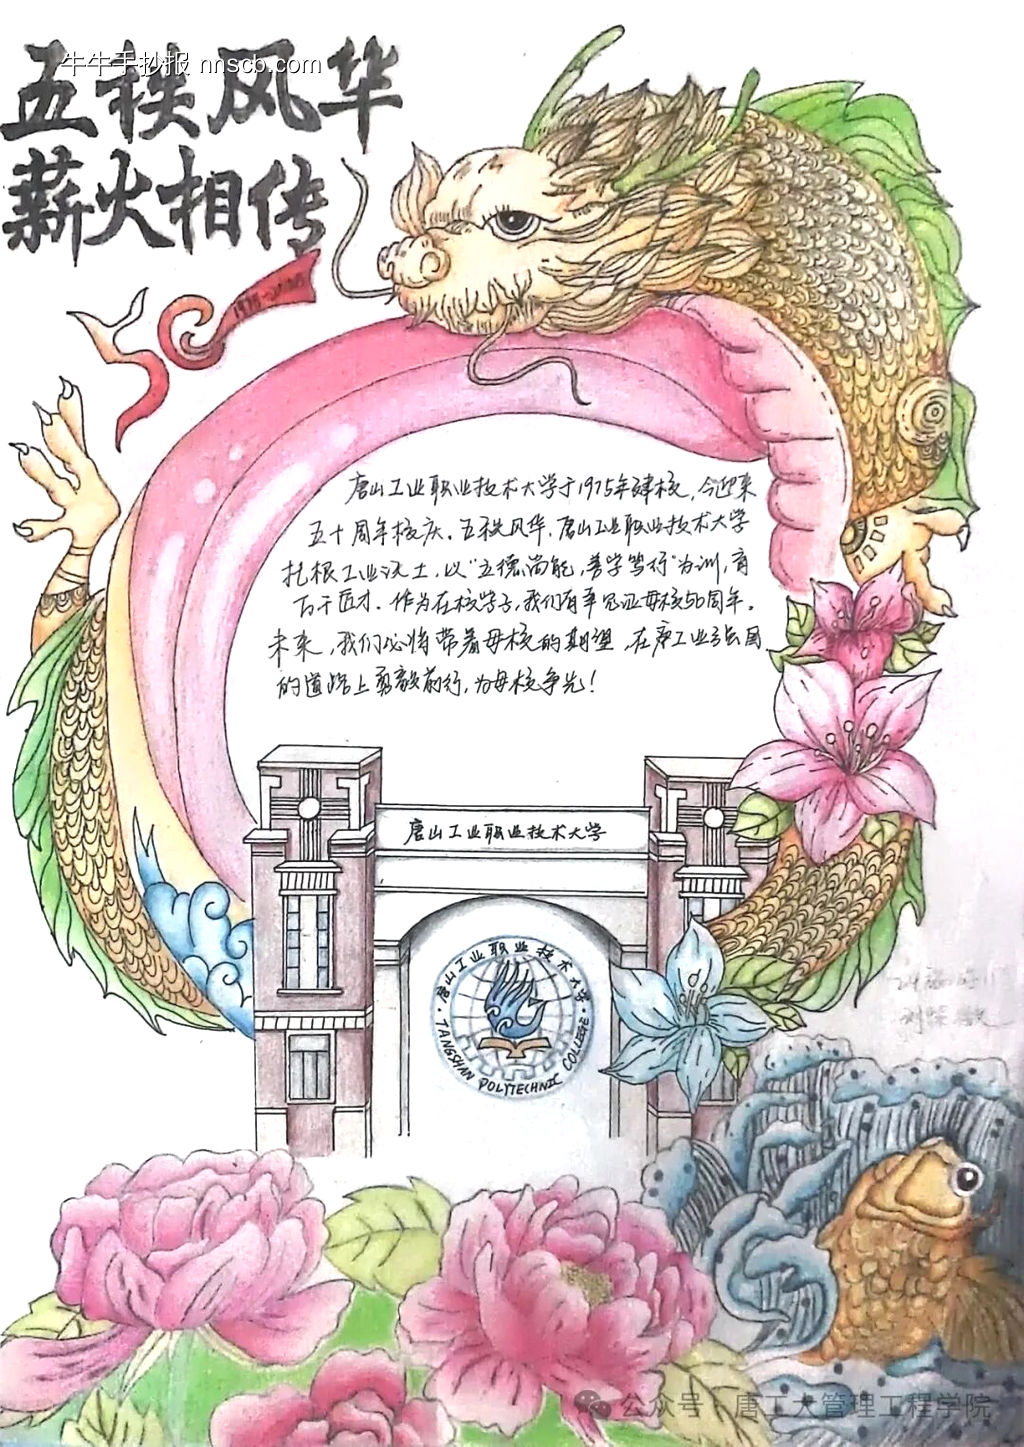 牛牛手抄报 nnscb.com
五秩风华
薪火相传
唐山工业职业技术大学于1975年建校，今迎来
五十周年校庆。五秩风华，唐山工业职业技术大学
扎根工业沃土，以“立德尚能，善学笃行”为训，育
万千匠才。作为在校学子，我们有幸见证母校50周年。
未来，我们必将带着母校的期望，在唐工业强国
的道路上勇敢前行，为母校争光！
唐山工业职业技术大学
唐山工业职业技术大学
TANGSHAN POLYTECHNIC COLLEGE
公众号 · 唐工大管理工程学院